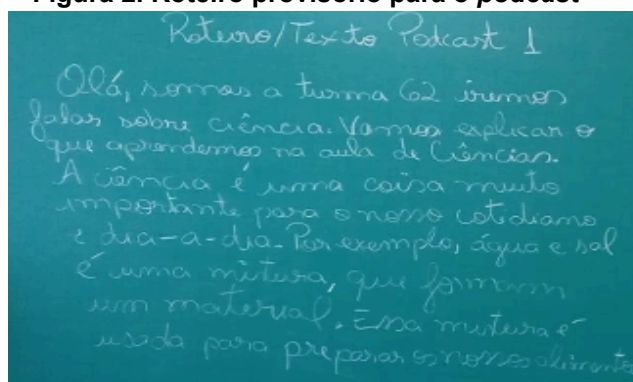 Figura 2. Roteiro provisório para o podcast
Roteiro/Texto Podcast 1
Olá, somos a turma 62 iremos
falar sobre ciência. Vamos explicar o
que aprendemos na aula de Ciências.
A ciência é uma coisa muito
importante para o nosso cotidiano
e dia-a-dia. Por exemplo, água e sal
é uma mistura, que formam
um material. Essa mistura é
usada para preparar os nossos alimentos